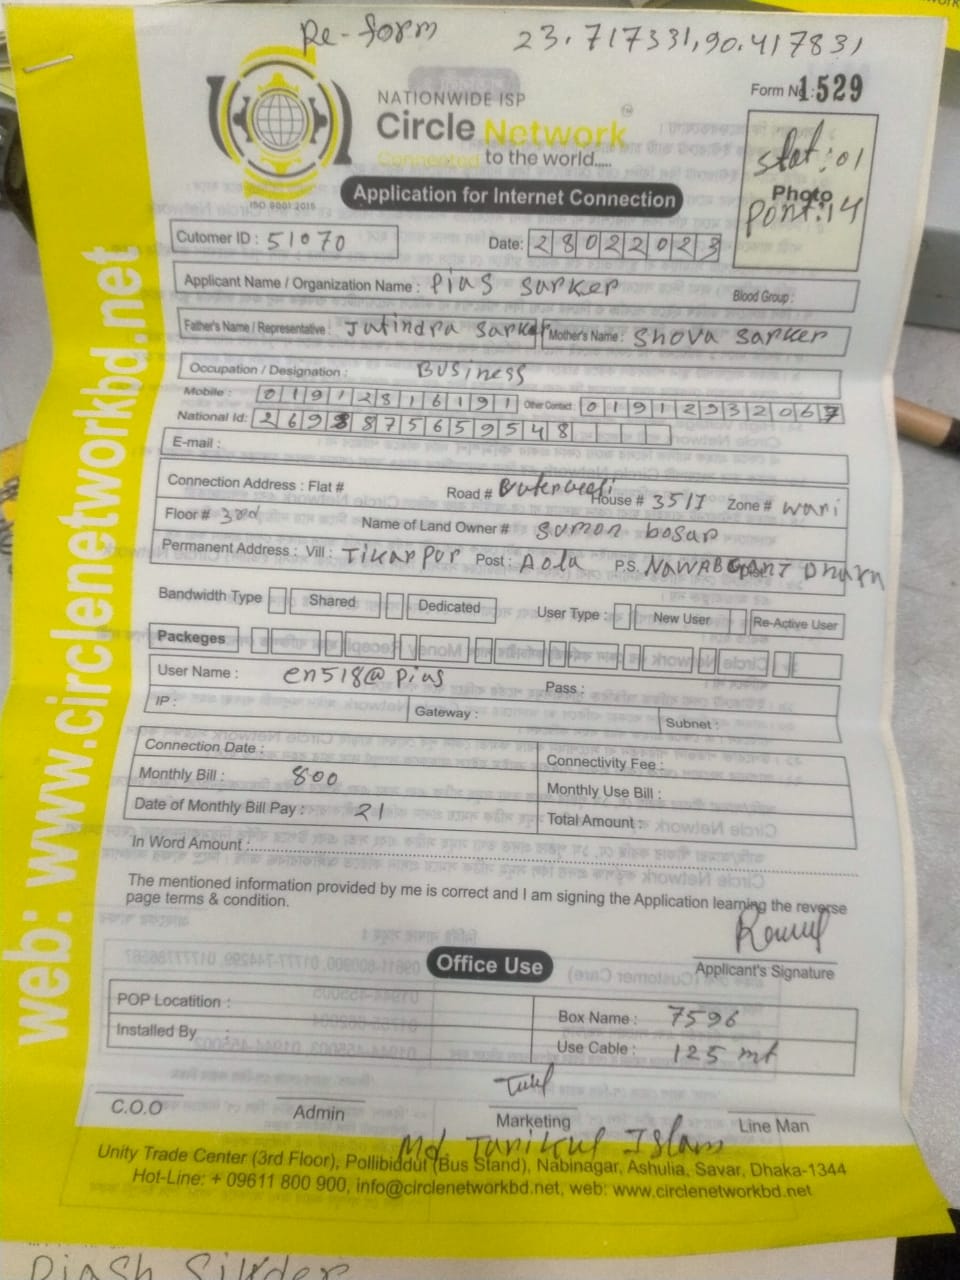 Re-form 23.717331,90.417831
NATIONWIDE ISP
Circle Network
Connected to the world.....
ISO 9001 2015
Form No : 1529
slot : 01
Photo
Pont : 14
Application for Internet Connection
Cutomer ID : 51070
Date: 28022023
Applicant Name / Organization Name : Pias sarker
Blood Group :
Father's Name / Representative : Jatindra sarker Mother's Name : Shova sarker
Occupation / Designation : BUSiness
Mobile : 01912816191 Other Contact : 01912932067
National Id: 2698875659548
E-mail :
Connection Address : Flat # Road # House # 351 Zone # wari
Floor # 3rd Name of Land Owner # sumon bosap
Permanent Address : Vill : Tikarpur Post : Aola P.S. NAWABGANJ Dhaka
Bandwidth Type Shared Dedicated User Type : New User Re-Active User
Packeges
User Name : en518@pias Pass :
IP : Gateway : Subnet :
Connection Date : Connectivity Fee :
Monthly Bill : 800 Monthly Use Bill :
Date of Monthly Bill Pay : 21 Total Amount :
In Word Amount :
The mentioned information provided by me is correct and I am signing the Application learning the reverse
page terms & condition.
Applicant's Signature
Office Use
POP Locatition : Box Name : 7596
Installed By : Use Cable : 125 mt
C.O.O Admin Marketing Line Man
Md. Tarikul Islam
Unity Trade Center (3rd Floor), Pollibiddut (Bus Stand), Nabinagar, Ashulia, Savar, Dhaka-1344
Hot-Line: + 09611 800 900, info@circlenetworkbd.net, web: www.circlenetworkbd.net
web: www.circlenetworkbd.net